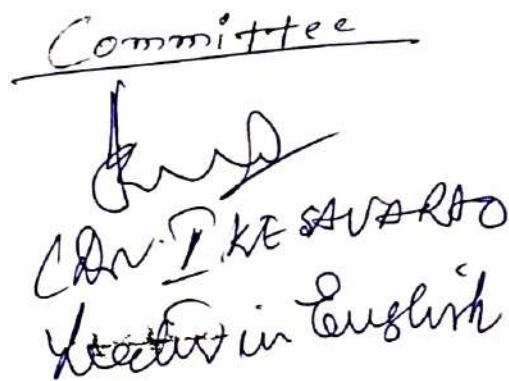 Committee
I. KESAVARAO
Lecturer in English